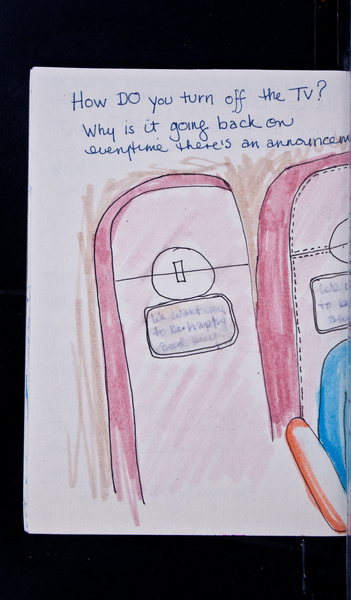 How DO you turn off the TV?
Why is it going back on
everytime there's an announcem
We want you
to be happy
and
We
to b